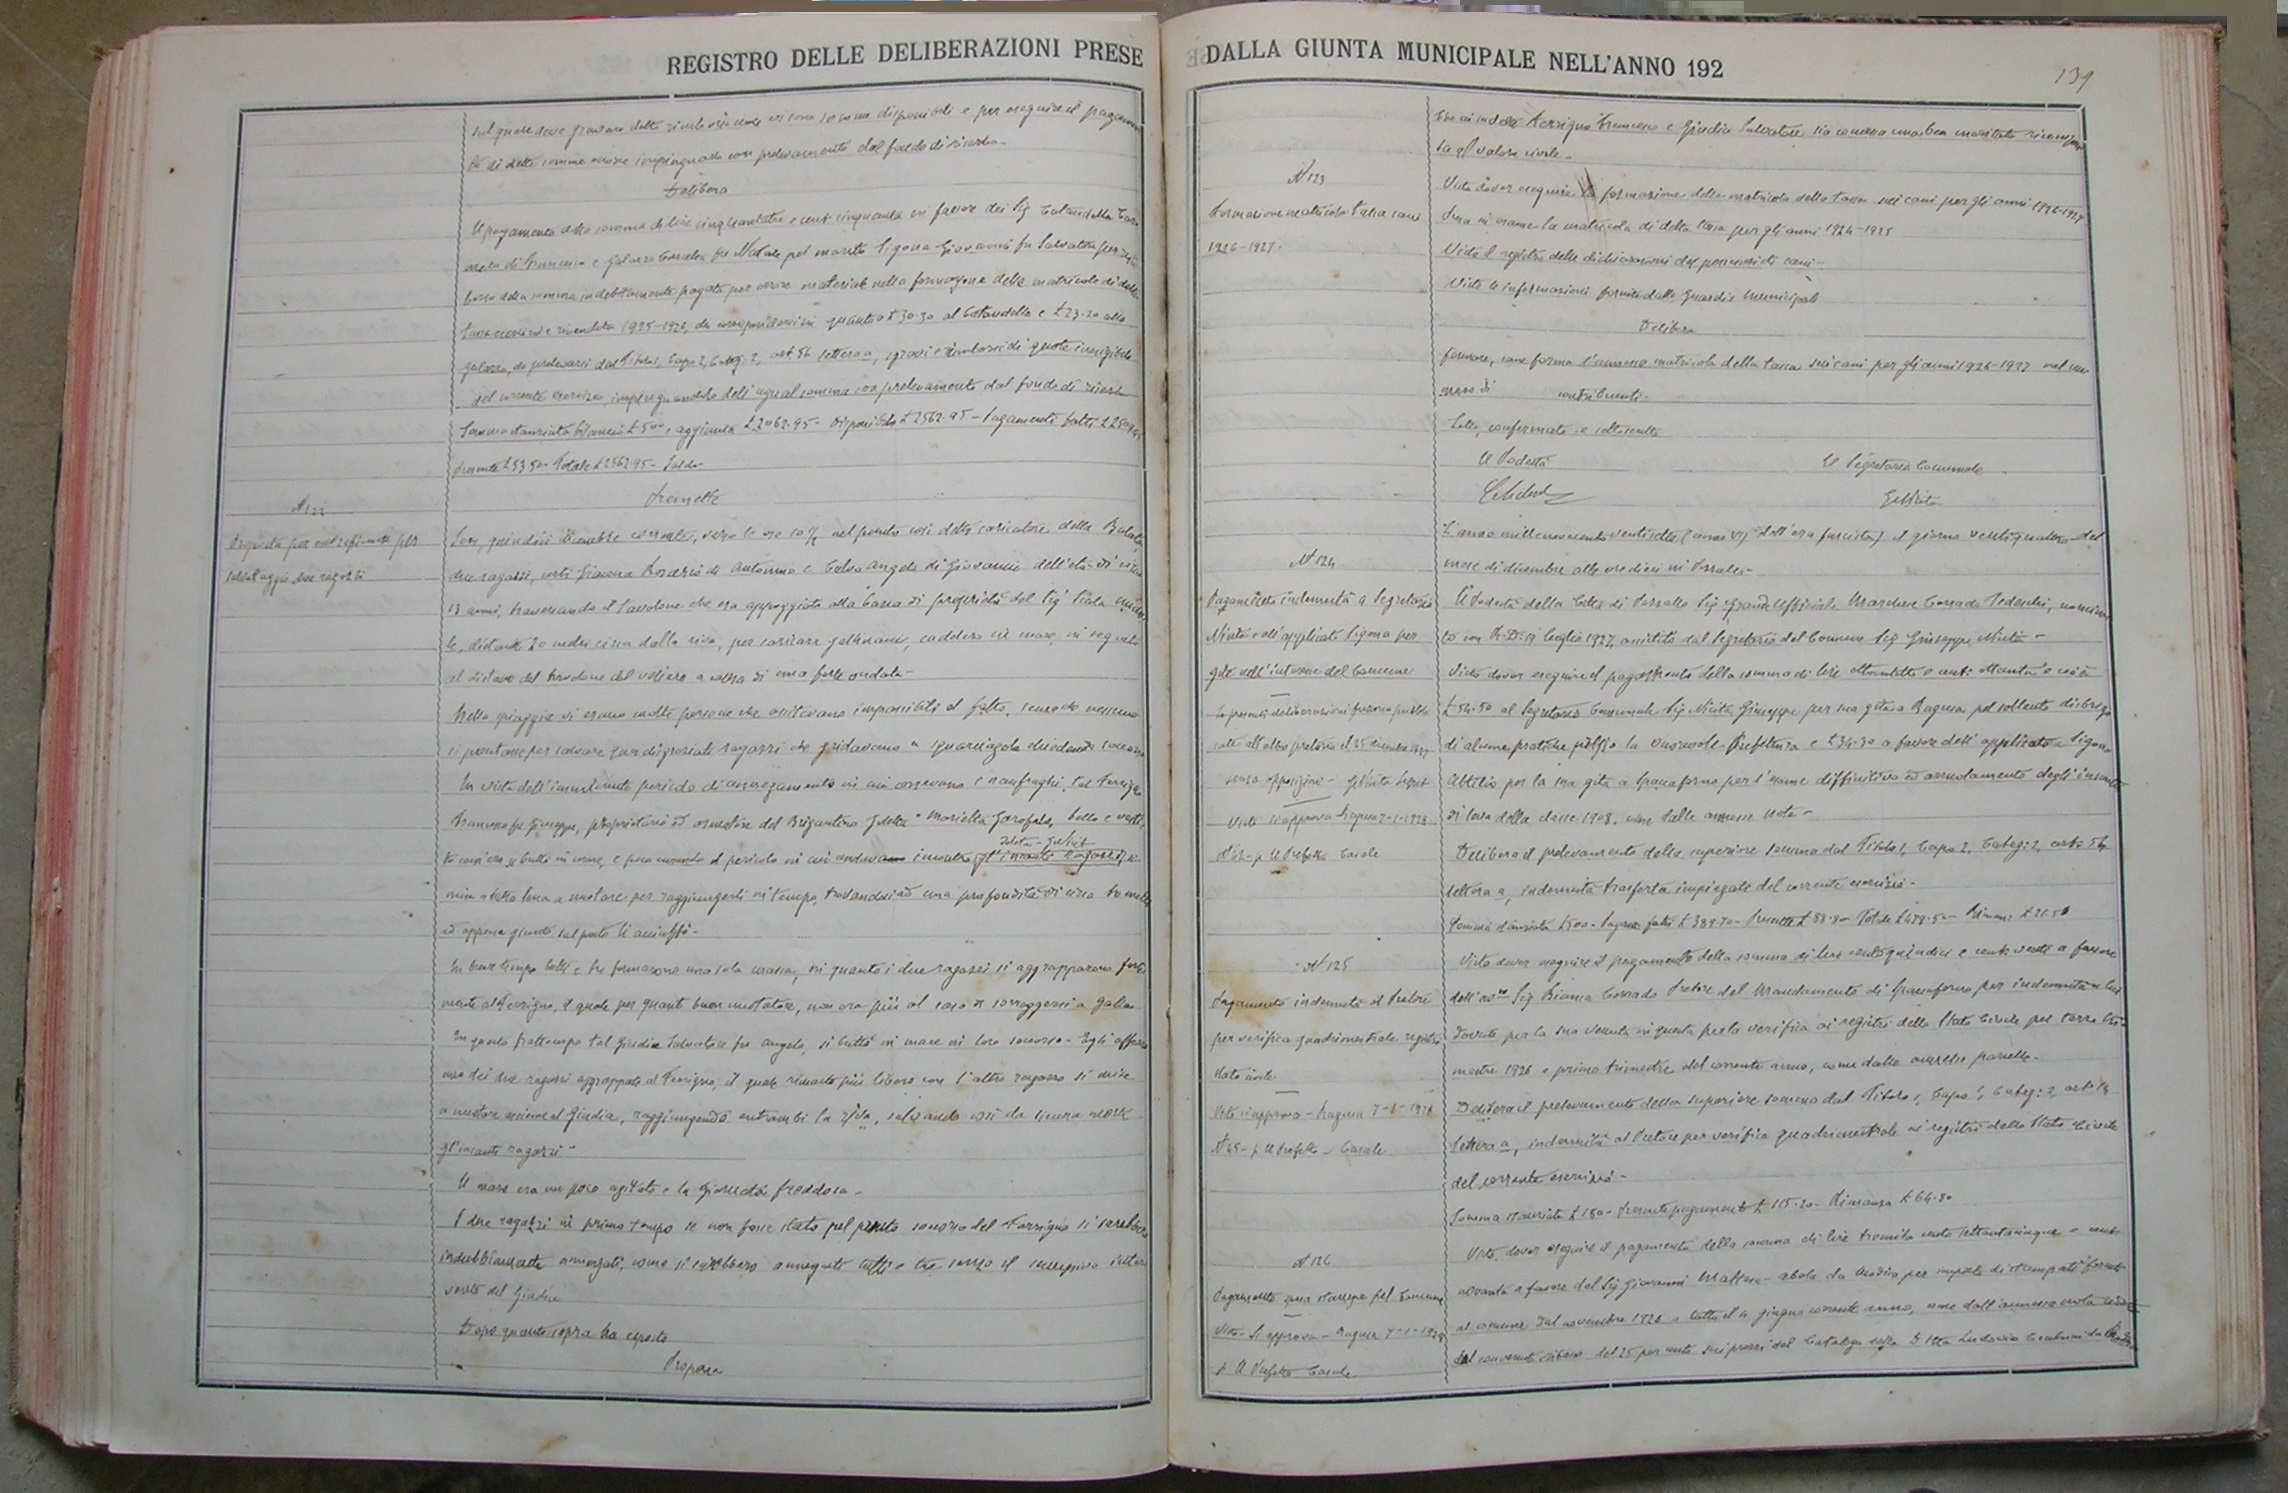 REGISTRO DELLE DELIBERAZIONI PRESE
sul quale deve gravare detto rimborso vi sono somme disponibili e per eseguire il pagamen
to di dette somme impinguado con prelevamento dal fondo di riserva
Delibera
Il pagamento della somma di lire cinquantatre e cent. cinquanta in favore dei Sig
di Francesco e fu Natale pel marito Sigona Giovanni fu Salvatore per
della somma indebitamente pagata per errore materiale nella formazione della matricola di detta
tassa esercizi e rivendite 1925-1926, da corrispondersi in quanto a £ 30.30 al e £ 23.20 alla
da prelevarsi dal Titolo 1, Capo 2, Categ: 2, art 56 lettera a, sgravi e rimborsi di quote inesigibili
del corrente esercizio, impinguandolo dell'ugual somma con prelevamento dal fondo di riserva
Somma stanziata bilancio £ 500, aggiunta £ 2062.95 - disponibile £ 2562.95 - Pagamenti fatti £
Presente £ 53.50 - Totale £ 2562.95 - Saldo
Premette
N 122
Proposta per per
salvataggio due ragazzi
Ieri, quindici Dicembre corrente, verso le ore 10½ nel punto così detto caricatore della Balata,
due ragazzi, certi Rosario di Antonino e Calvo Angelo di Giovanni dell'età di circa
13 anni, traversando il tavolone che era appoggiato alla barca di proprietà del Sig
distante 20 metri circa dalla riva, per caricare caddero in mare, in seguito
al distacco del tavolone dal veliero a causa di una forte ondata
Nella spiaggia vi erano molte persone che assistevano impassibili al fatto, senonchè nessuno
si prontasse per salvare quei disgraziati ragazzi che gridavano a squarciagola chiedendo soccorso
In vista dell'imminente pericolo di annegamento in cui correvano i naufraghi, tal Ferrigno
Francesco fu Giuseppe, proprietario ed armatore del Brigantino Goletta "Mariella Garofalo, bello e vesti
to com'era si buttò in mare, e poco curando il pericolo in cui andava incontro (gl'incauti ragazzi) si
mise a tutta lena a nuotare per raggiungerli in tempo, trovandosi ad una profondità di circa metri
ed appena giunto sul posto li acciuffò -
In breve tempo tutti e tre formarono una sola massa, in quanto i due ragazzi si aggrapparono forte
mente al Ferrigno, il quale per quanto buon nuotatore, non era più al caso di sorreggersi a galla
In questo frattempo tal Giudice Salvatore fu Angelo, si buttò in mare in loro soccorso - Egli afferrò
uno dei due ragazzi aggrappato al Ferrigno, il quale rimasto più libero con l'altro ragazzo si mise
a nuotare assieme al Giudice, raggiungendo entrambi la riva, salvando così da sicura morte
gl'incauti ragazzi -
Il mare era un poco agitato e la giornata freddosa -
I due ragazzi in primo tempo se non fosse stato pel pronto soccorso del Ferrigno si sarebbero
indubbiamente annegati, come si sarebbero annegati tutti e tre senza il susseguivo inter
vento del Giudice
Dopo quanto sopra ha esposto
Propone
DALLA GIUNTA MUNICIPALE NELL'ANNO 192
139
Ferrigno Francesco e Giudice Salvatore sia concessa una ben meritata ricompen
sa al valore civile -
N 123
Formazione matricola tassa cani
1926-1927.
Visto dover eseguire la formazione della matricola della tassa sui cani per gli anni 1926-1927
Presa in esame la matricola di detta tassa per gli anni 1924-1925
Visto il registro delle dichiarazioni dei possessori di cani -
Viste le informazioni fornite dalle Guardie Municipali
Delibera
formare, come forma l'annessa matricola della tassa sui cani per gli anni 1926-1927 nel nu
mero di contribuenti -
Letto, confermato e sottoscritto
Il Podestà Il Segretario Comunale
L'anno millenovecentoventisette (anno VI° dell'era fascista) il giorno ventiquattro del
mese di dicembre alle ore dieci in
N 124
Pagamento indennità a Segretario
e all'applicato Sigona per
gite nell'interesse del Comune
Le presenti deliberazioni furono pubbli
cate all'albo pretorio il 25 dicembre 1927
senza opposizioni -
Visto si approva Ragusa 7-1-1928
p. Il Prefetto Casale
Il Podestà della Città di Sig. Grand'Ufficiale Marchese Corrado Tedeschi, nomina
to con R. D. luglio 1927, assistito dal Segretario del Comune Sig Giuseppe
Visto dover eseguire il pagamento della somma di lire ottantotto e cent: ottanta e cioè
£ 54.50 al Segretario Comunale Sig Giuseppe per sua gita a Ragusa pel sollecito disbrigo
di alcune pratiche presso la onorevole Prefettura e £ 34.30 a favore dell'applicato Sigona
Attilio per la sua gita a Spaccaforno per l'esame diffinitivo ed arruolamento degli inscritti
di leva della classe 1908, come dalle annesse note -
Delibera il prelevamento della superiore somma dal Titolo 1, Capo 2, Categ: 2, art 54
lettera a, indennità trasferta impiegati del corrente esercizio -
Somma stanziata £ 500 - Pagam: fatti £ 389.70 - Presente £ 88.80 - Totale £ 478.50 - Riman: £ 21.50
N 125
Pagamento indennità al Pretore
per verifica quadrimestrale registri
stato civile
Visto si approva - Ragusa 7-1-1928
p. Il Prefetto - Casale
Visto dover eseguire il pagamento della somma di lire centoquindici e cent. venti a favore
dell' Sig Corrado Pretore del Mandamento di Spaccaforno per indennità a lui
dovute per la sua venuta in questa per la verifica ai registri dello Stato Civile pel terzo tri
mestre 1926 e primo trimestre del corrente anno, come dalle annesse parcelle -
Delibera il prelevamento della superiore somma dal Titolo 1, Capo 1, Categ: 2, art 18
lettera a, indennità al Pretore per verifica quadrimestrale ai registri dello Stato Civile
del corrente esercizio -
Somma stanziata £ 180 - Presente pagamento £ 115.20 - Rimanenza £ 64.80
N 126
Pagamento spesa stampe pel Comune
Visto - Si approva - Ragusa 7-1-1928
p. Il Prefetto Casale
Visto dover eseguire il pagamento della somma di lire tremila cento settantacinque e cent.
novanta a favore del Sig Giovanni Maltese - da Modica per importo di stampati forniti
al comune dal novembre 1926 a tutto il giugno corrente anno, come dall'annessa nota
del convenuto ribasso del 25 per cento sui prezzi del Catalogo della Ditta Ludovico